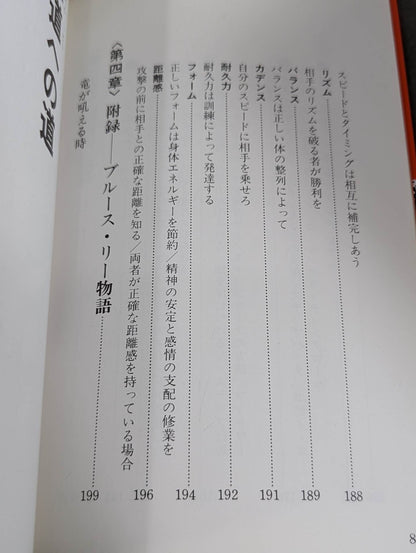 スピードとタイミングは相互に補完しあう
リズム……188
相手のリズムを破る者が勝利を
バランス……189
バランスは正しい体の整列によって
カデンス……191
自分のスピードに相手を乗せろ
耐久力……192
耐久力は訓練によって発達する
フォーム……194
正しいフォームは身体エネルギーを節約/精神の安定と感情の支配の修業を
距離感……196
攻撃の前に相手との正確な距離を知る/両者が正確な距離感を持っている場合
〈第四章〉附録──ブルース・リー物語……199
竜が吼える時
道への道
8